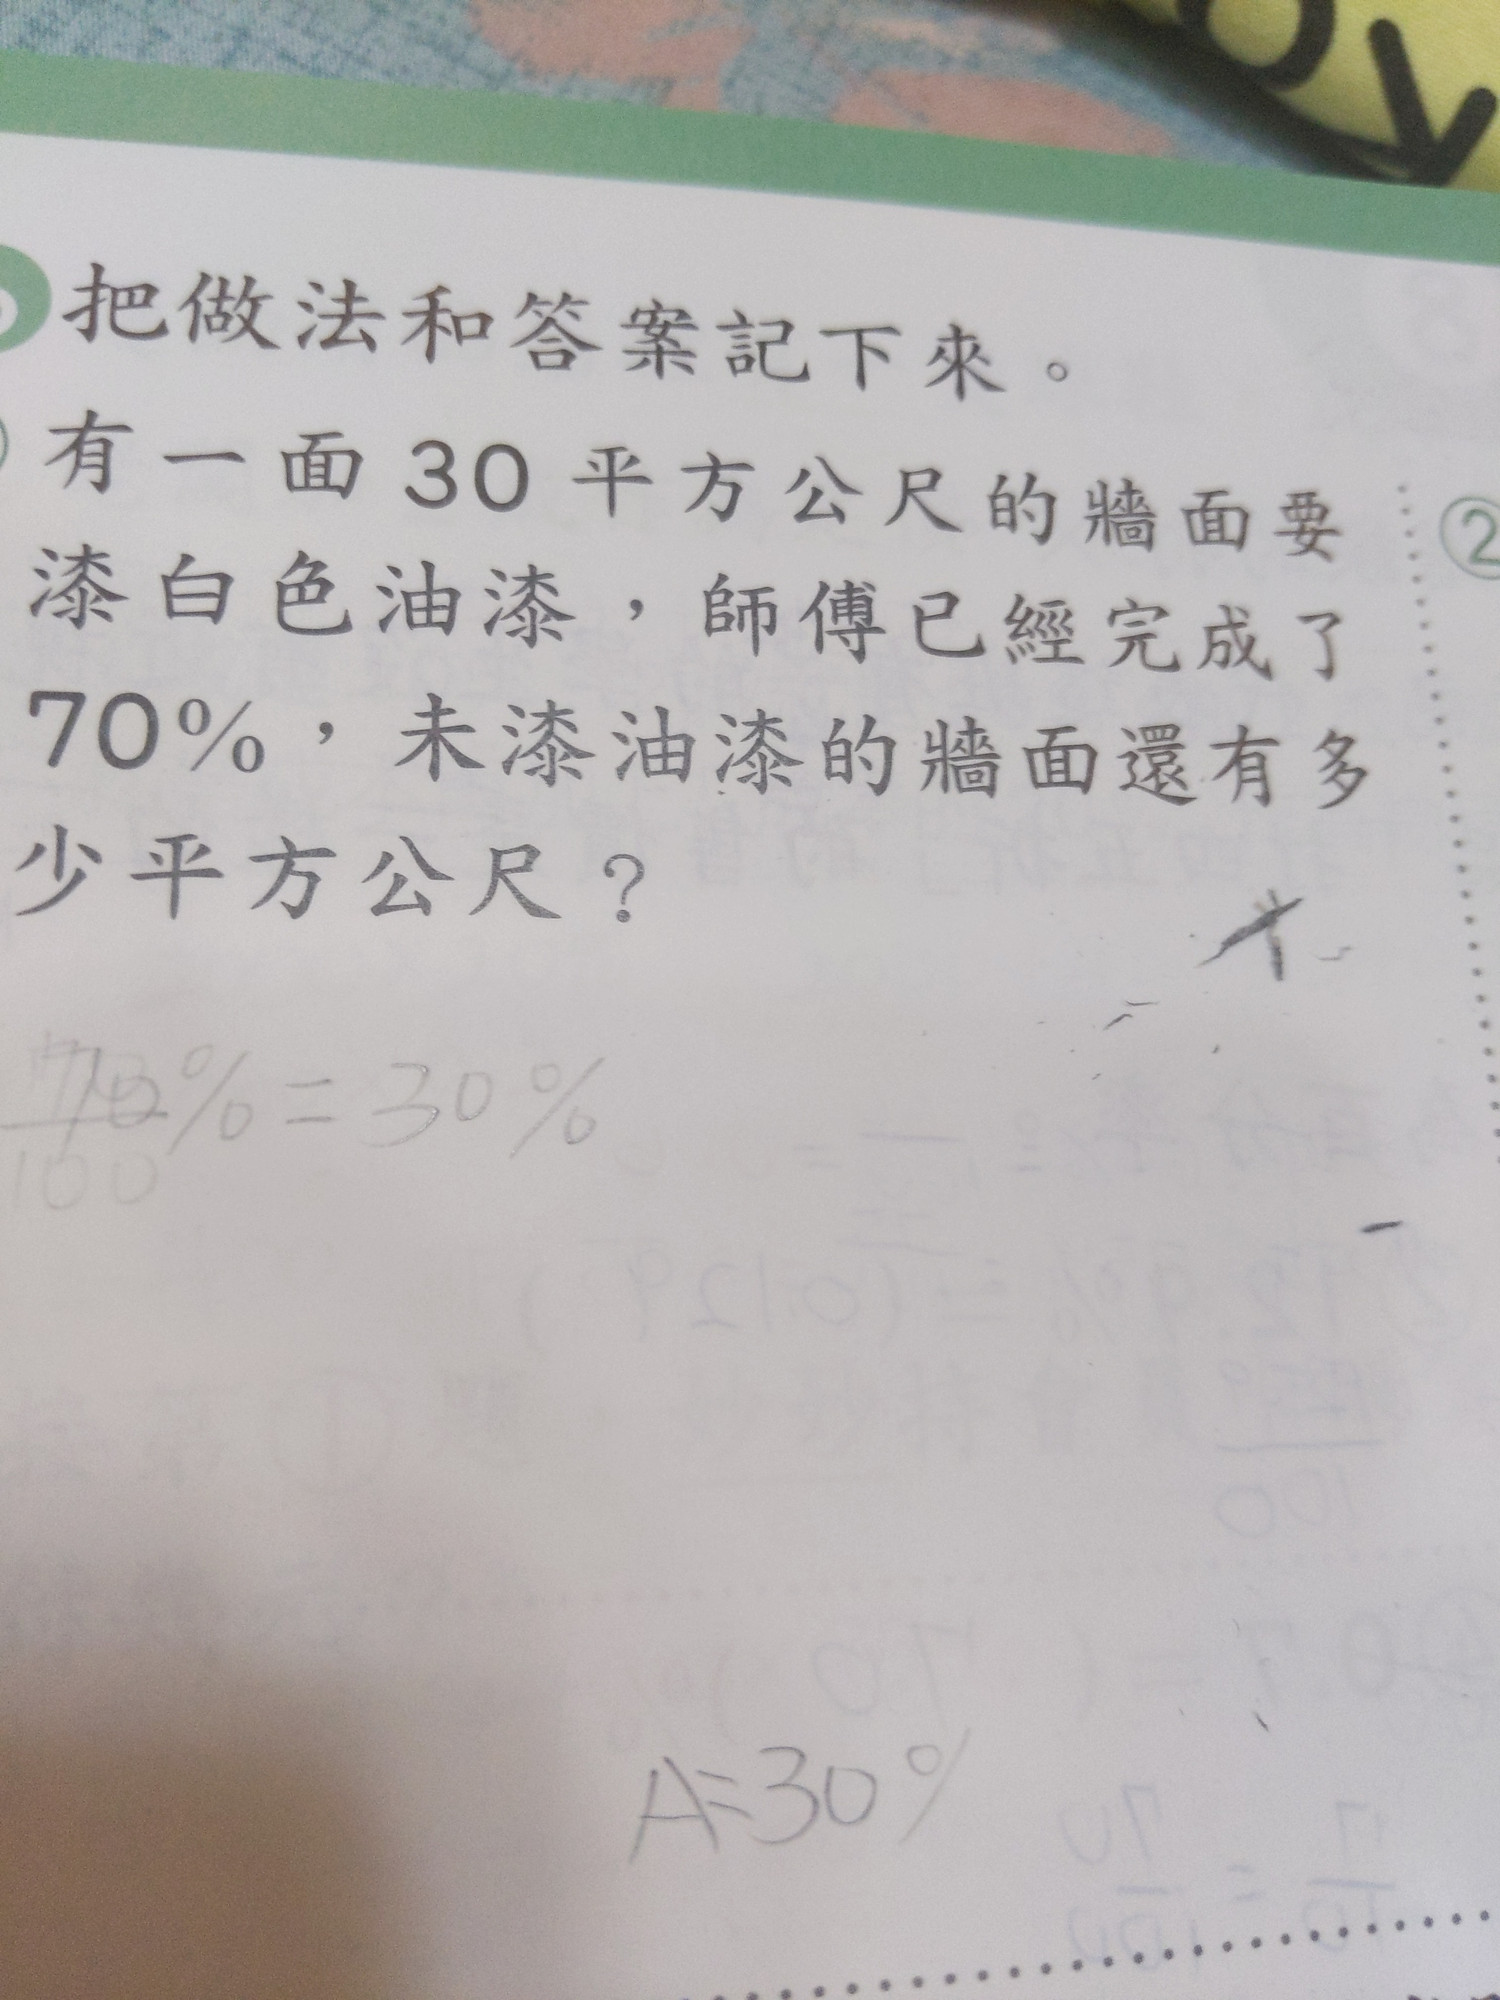 把做法和答案記下來。
有一面30平方公尺的牆面要
漆白色油漆，師傅已經完成了
70%，未漆油漆的牆面還有多
少平方公尺？
②
% = 30%
100
A=30%